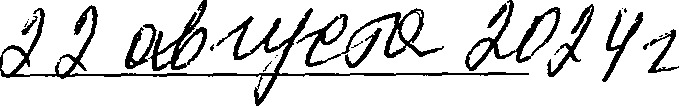 22 августа 2024г